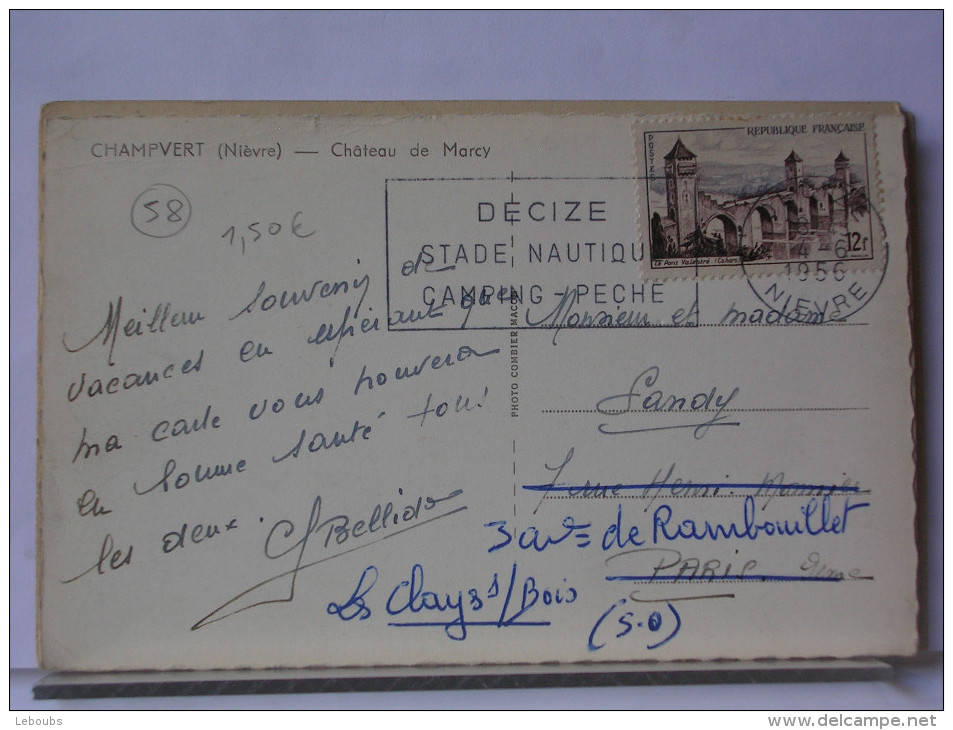 CHAMPVERT (Nièvre) — Château de Marcy
58
1,50€
REPUBLIQUE FRANÇAISE
POSTES
Le Pont Valentré (Cahors)
12f
DECIZE
STADE NAUTIQU
CAMPING - PECHE
4-6
1956
NIEVRE
PHOTO COMBIER MACON
Meilleur souvenir de
vacances en espérant que
ma carte vous trouvera
en bonne santé tous
les deux.
Bellido
Monsieur et madame
Landy
7 rue Henri Monnier
3 ave de Rambouillet
PARIS. 9ème
Les Clayes s/Bois
(S.O)
Leboubs
www.delcampe.net